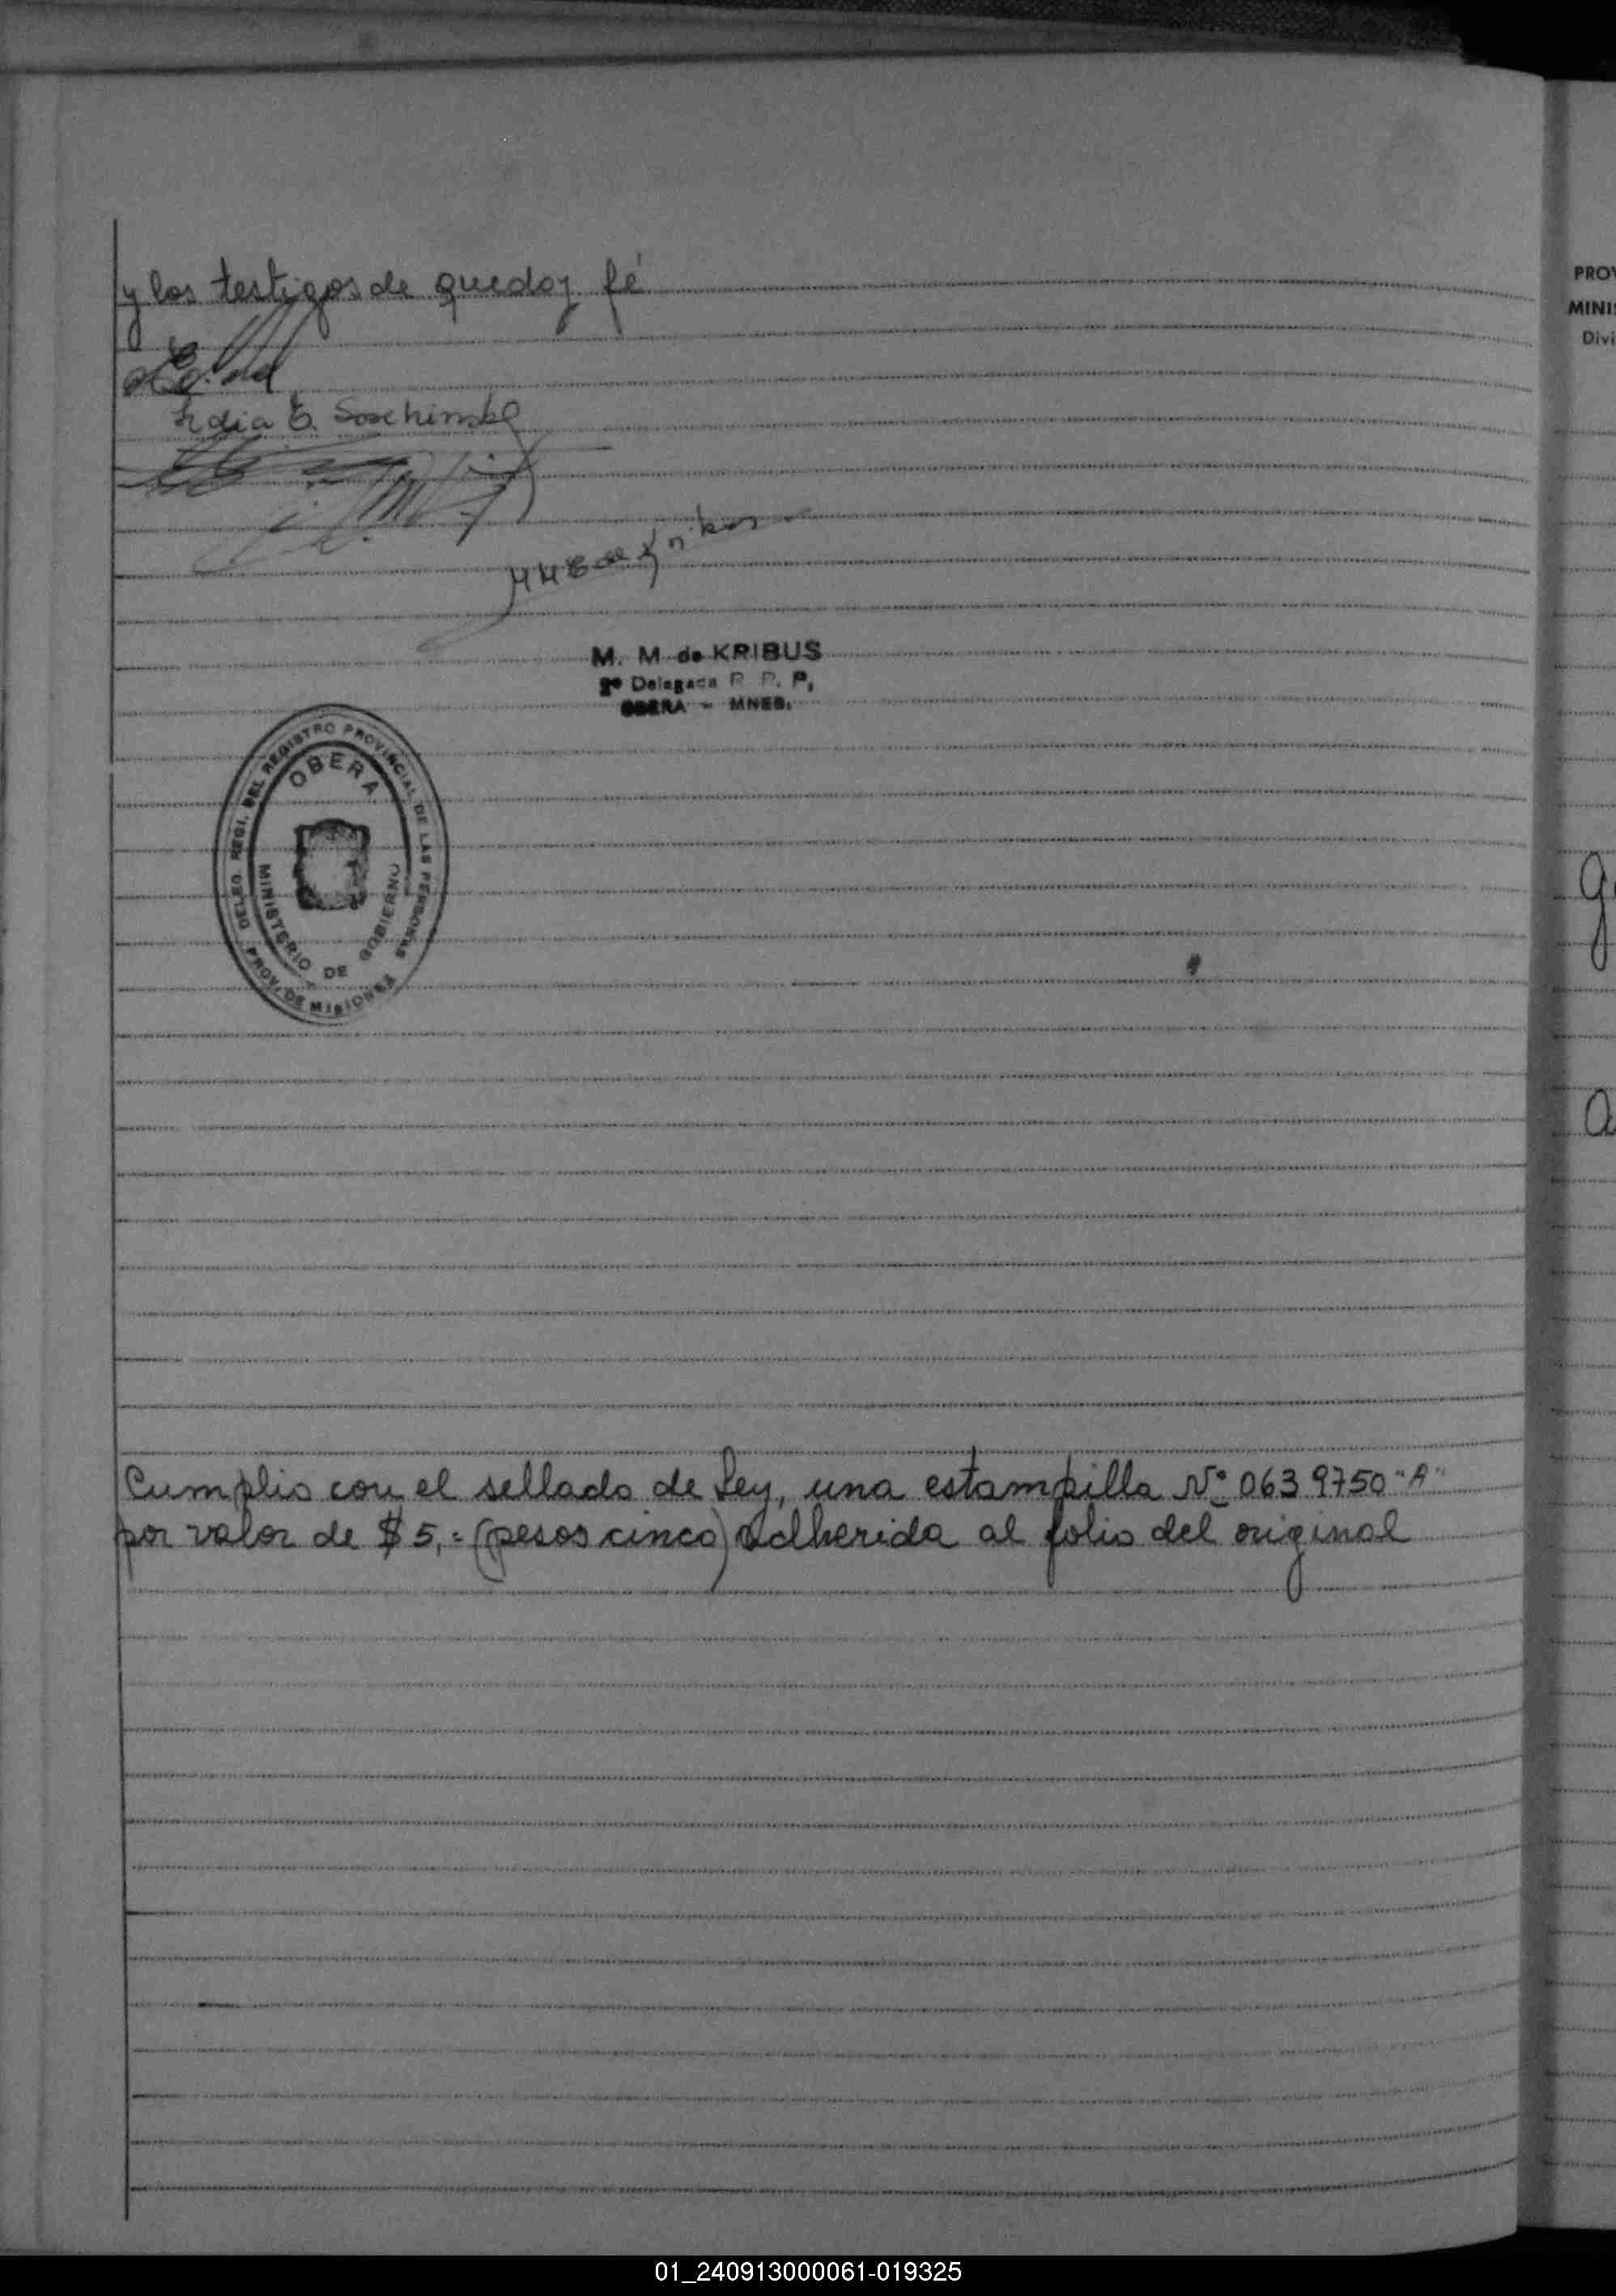 y los testigos de que doy fé
Lidia E. Soschinski
M. M. de KRIBUS
2º Delegada R. P. P.
OBERA - MNES.
DELEG. REGI. DEL REGISTRO PROVINCIAL DE LAS PERSONAS
OBERA
MINISTERIO DE GOBIERNO
PROV. DE MISIONES
Cumplio con el sellado de Ley, una estampilla Nº 0639750 "A"
por valor de $ 5,= (pesos cinco) adherida al folio del original
PROV
MINIS
Divi
01_240913000061-019325